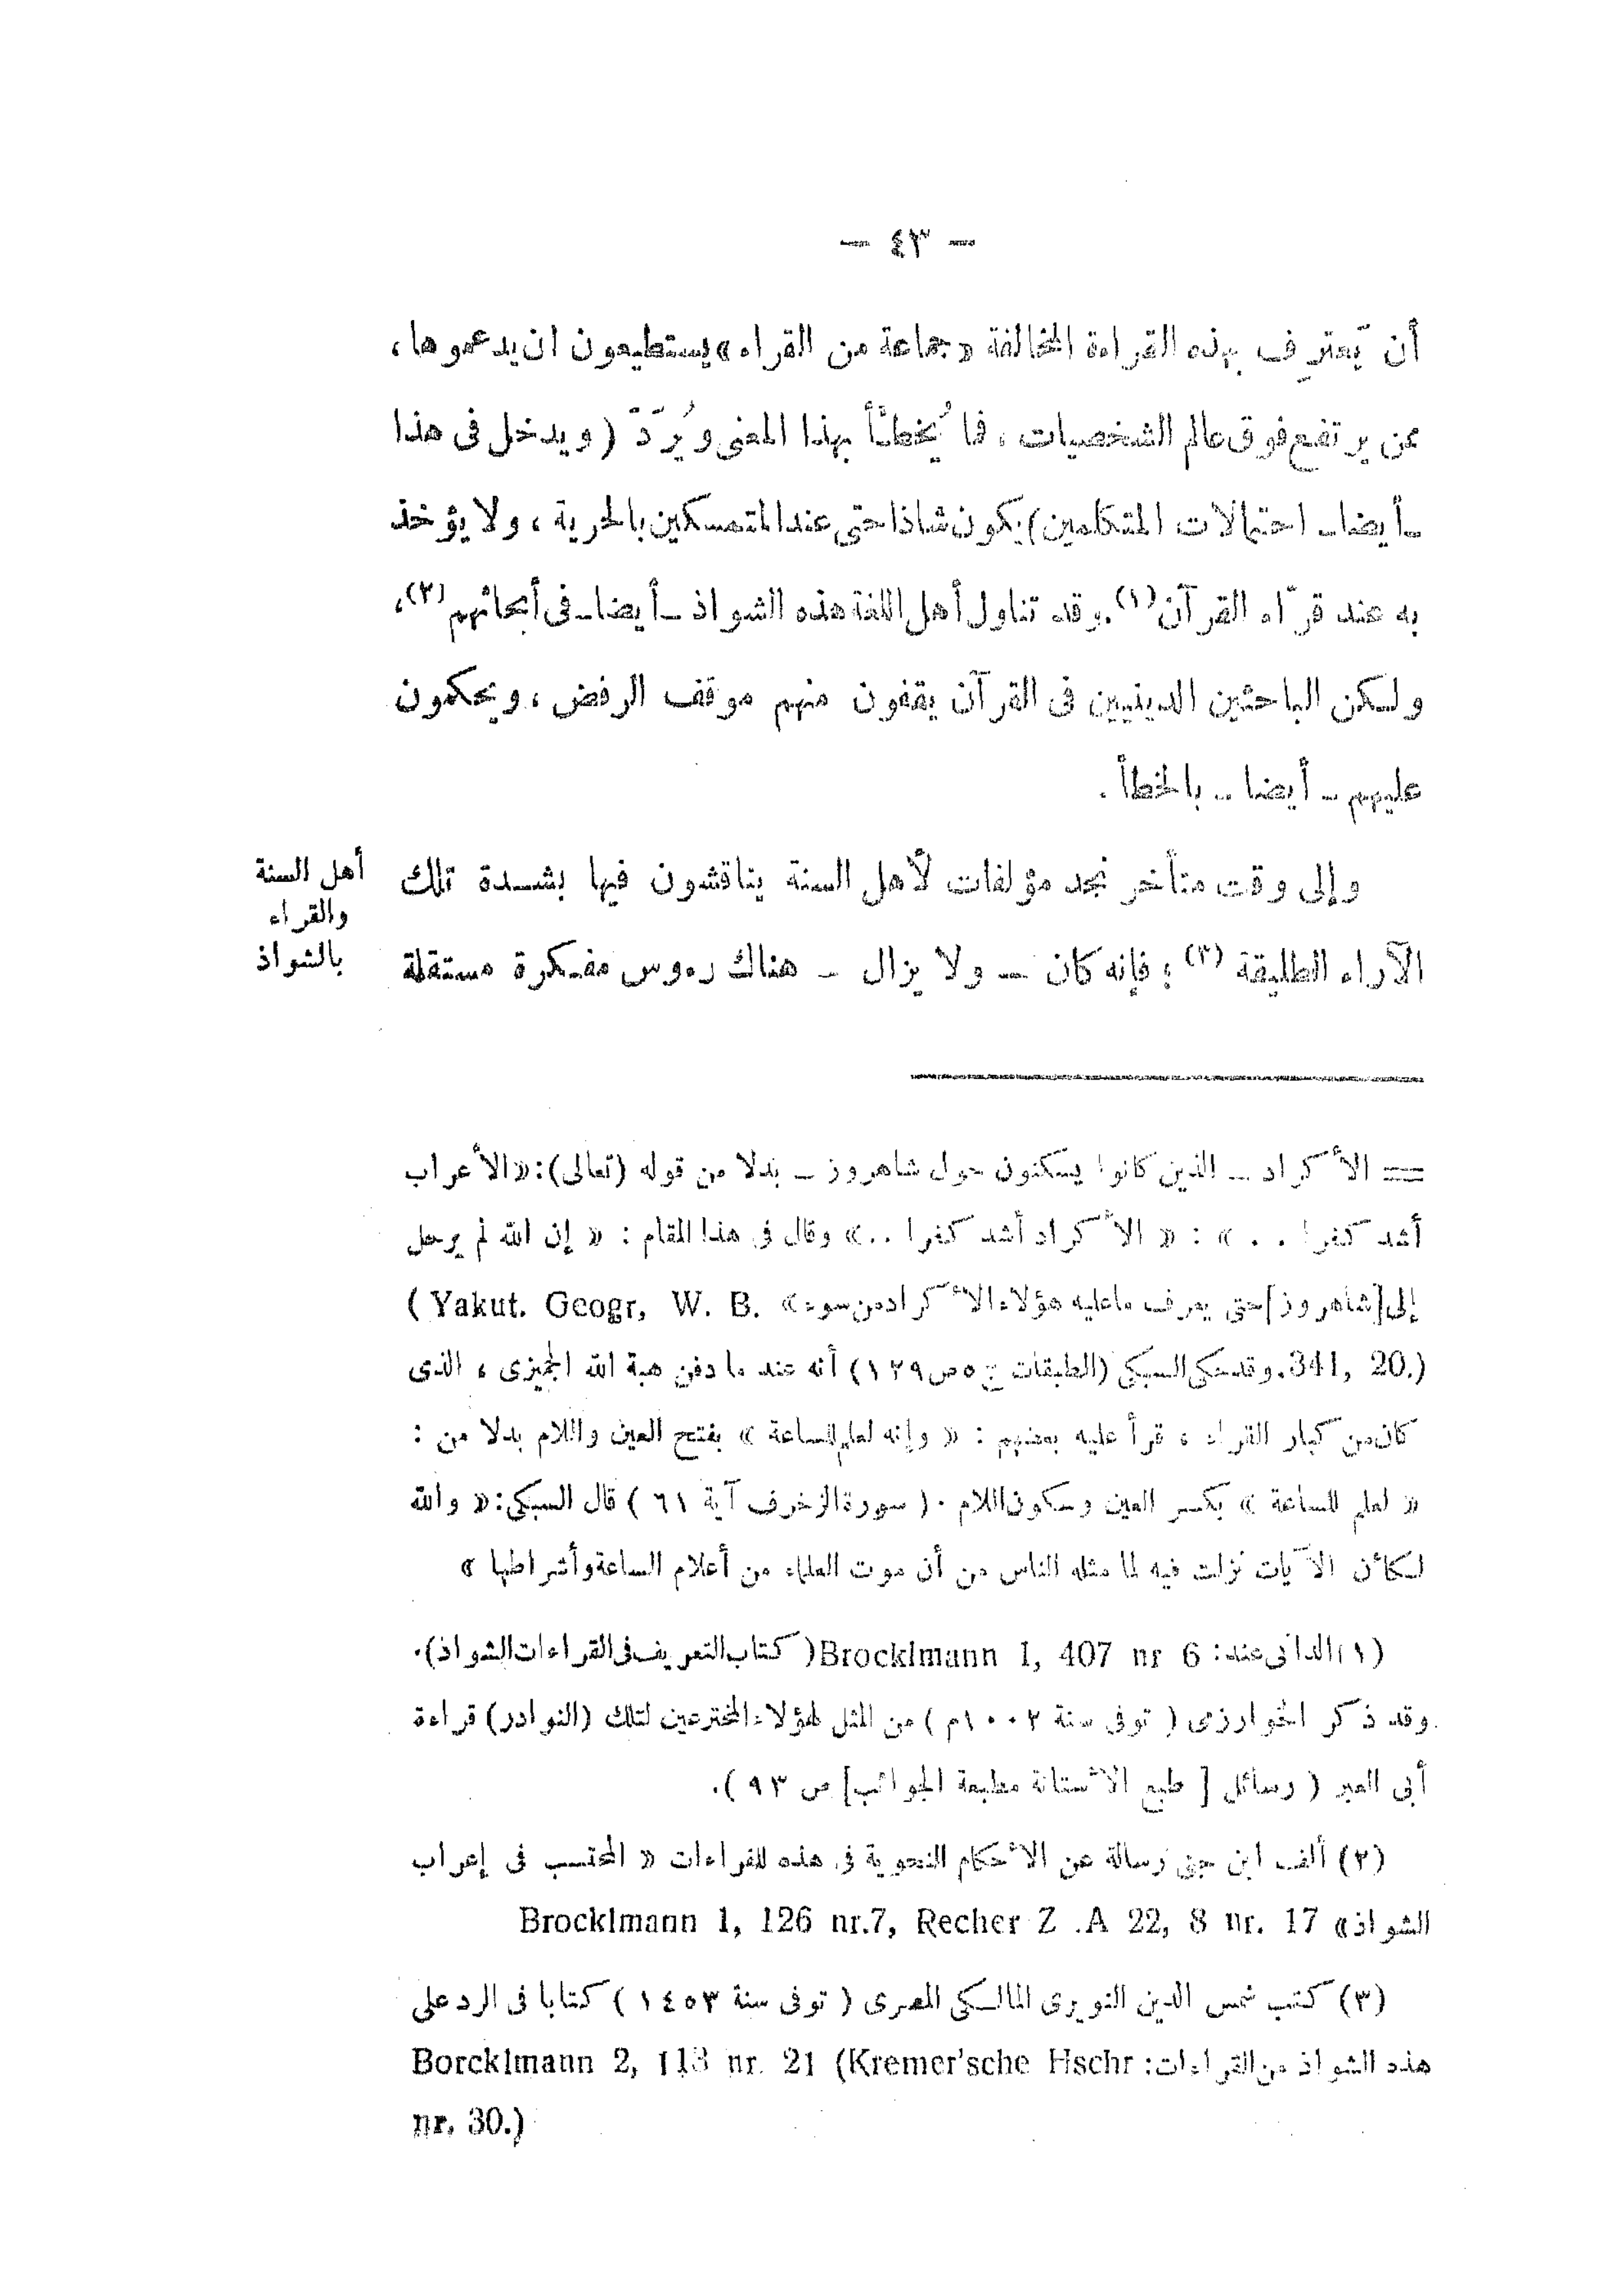 — ٤٣ —
أن يَعترِف بهذه القراءة المخالفة «جماعة من القراء» يستطيعون ان يدعموها،
ممن يرتفع فوق عالم الشخصيات، فما يُخطَّأ بهذا المعنى ويُرَدّ (ويدخل فى هذا
ـ أيضا ـ احتمالات المتكلمين) يكون شاذا حتى عند المتمسكين بالحرية، ولا يؤخذ
به عند قرّاء القرآن (١). وقد تناول أهل اللغة هذه الشواذ ـ أيضا ـ فى أبحاثهم (٢)،
ولكن الباحثين الدينيين فى القرآن يقفون منهم موقف الرفض، ويحكمون
عليهم ـ أيضا ـ بالخطأ.
وإلى وقت متأخر نجد مؤلفات لأهل السنة يناقشون فيها بشدة تلك
الآراء الطليقة (٣)؛ فإنه كان — ولا يزال — هناك رءوس مفكرة مستقلة
أهل السنة
والقراء
بالشواذ
== الأكراد ـ الذين كانوا يسكنون حول شاهروز ـ بدلا من قوله (تعالى): «الأعراب
أشد كفرا . . » : « الأكراد أشد كفرا ..» وقال فى هذا المقام : « إن الله لم يرحل
إلى [شاهروز] حتى يعرف ما عليه هؤلاء الأكراد من سوء» ( Yakut. Geogr, W. B.
341, 20.). وقد حكى السبكى (الطبقات ج ٥ ص ١٢٩) أنه عند ما دفن هبة الله الجميزى، الذى
كان من كبار القراء، قرأ عليه بعضهم : « وإنه لعلم للساعة » بفتح العين واللام بدلا من :
« لعلم للساعة » بكسر العين وسكون اللام . ( سورة الزخرف آية ٦١ ) قال السبكى: « والله
لكأن الآيات نزلت فيه لما مثله الناس من أن موت العلماء من أعلام الساعة وأشراطها »
(١) الدانى عند: Brocklmann 1, 407 nr 6 (كتاب التعريف فى القراءات الشواذ).
وقد ذكر الخوارزمى ( توفى سنة ١٠٠٢م ) من المثل لهؤلاء المخترعين لتلك (النوادر) قراءة
أبى العبر ( رسائل [ طبع الأستانة مطبعة الجوائب] ص ٩٣ ).
(٢) ألف ابن جنى رسالة عن الأحكام النحوية فى هذه القراءات « المحتسب فى إعراب
الشواذ» Brocklmann 1, 126 nr.7, Recher Z .A 22, 8 nr. 17
(٣) كتب شمس الدين النويرى المالكى المصرى ( توفى سنة ١٤٥٣ ) كتابا فى الرد على
هذه الشواذ من القراءات: Borcklmann 2, 113 nr. 21 (Kremer'sche Hschr
nr. 30.)